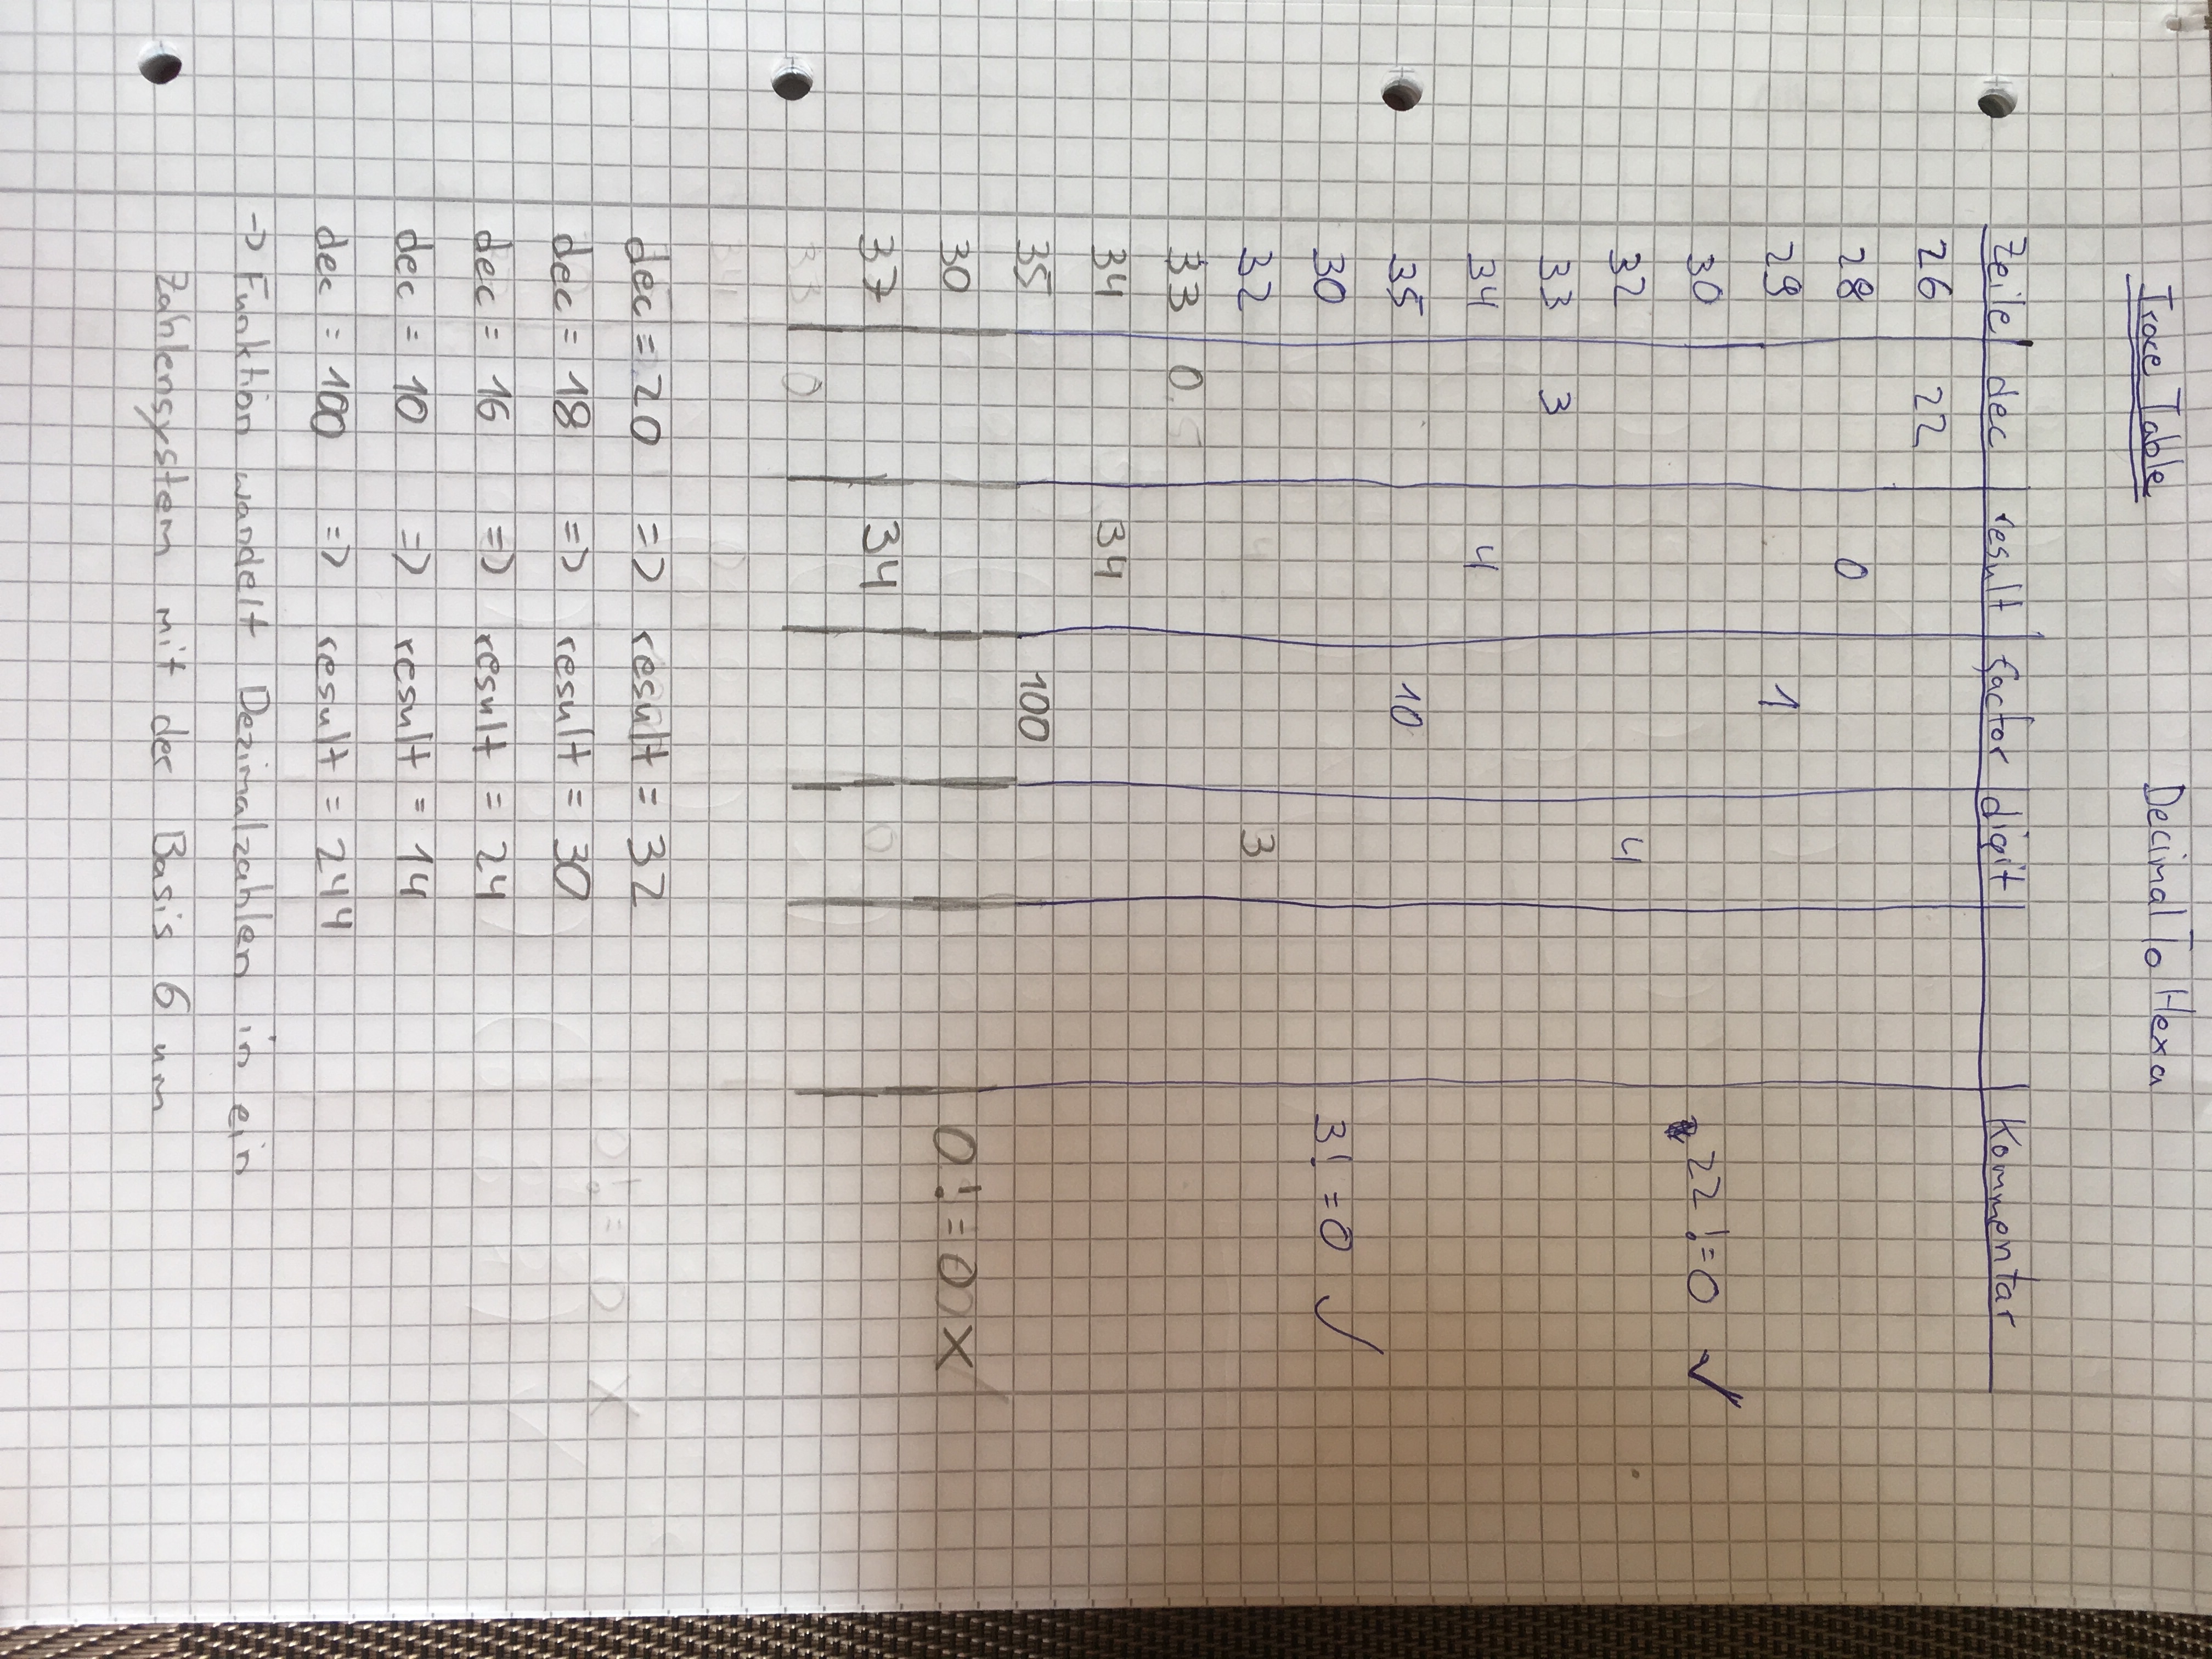 Trace Table DecimalToHexa
Zeile dec result factor digit Kommentar
26 22
28 0
29 1
30 22!=0 ✓
32 4
33 3
34 4
35 10
30 3!=0 ✓
32 3
33 0
34 34
35 100
30 0!=0 X
37 34
dec = 20 => result = 32
dec = 18 => result = 30
dec = 16 => result = 24
dec = 10 => result = 14
dec = 100 => result = 244
-> Funktion wandelt Dezimalzahlen in ein
Zahlensystem mit der Basis 6 um